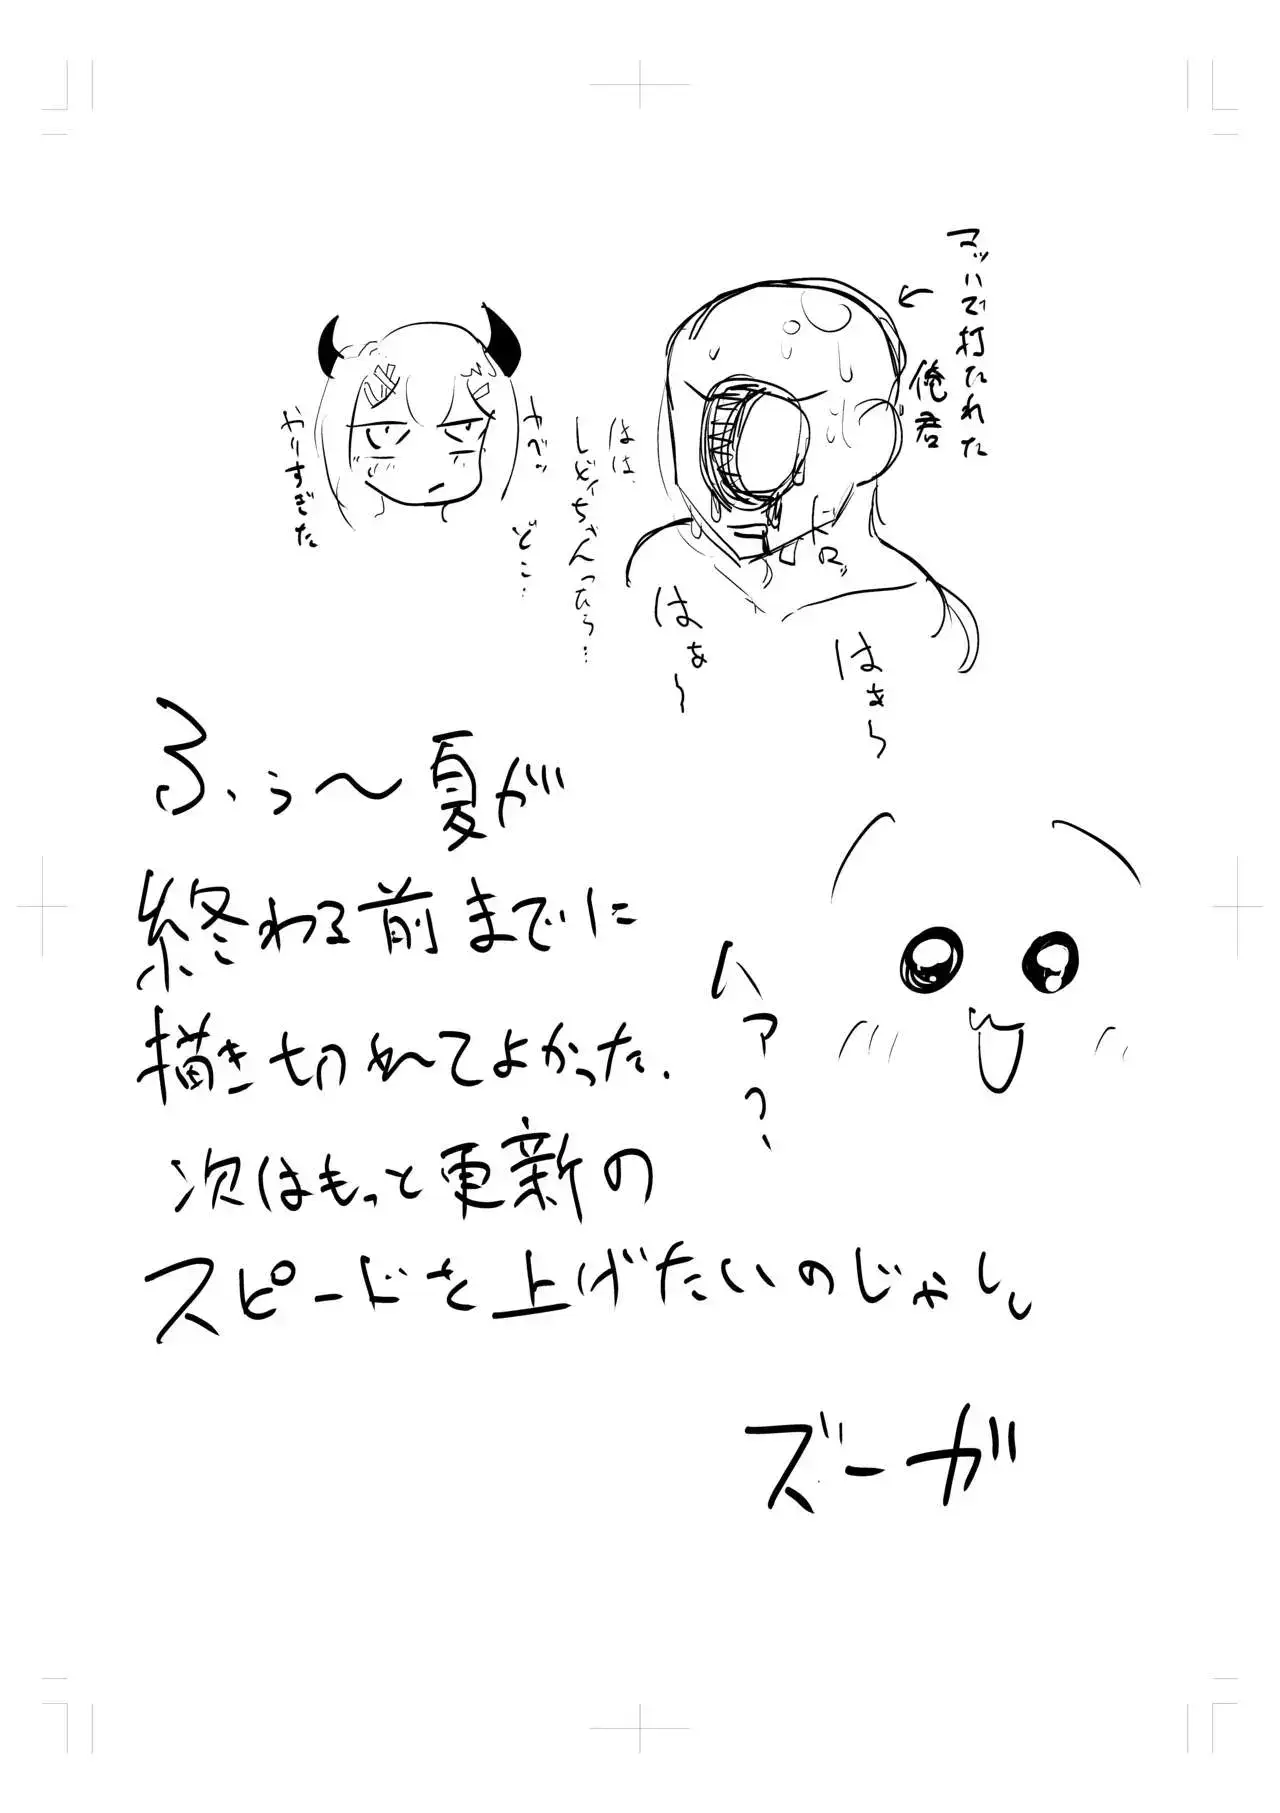 マッハで打たれた
俺君
はは、
しどぃちゃんったら…
ヤベッ
どこ…
やりすぎた
ドロッ
はぁ〜
はぁら
ふぅ〜夏が
終わる前までに
描き切れてよかった、
次はもっと更新の
スピードを上げたいのじゃし。
ハァっ、
ズーガ